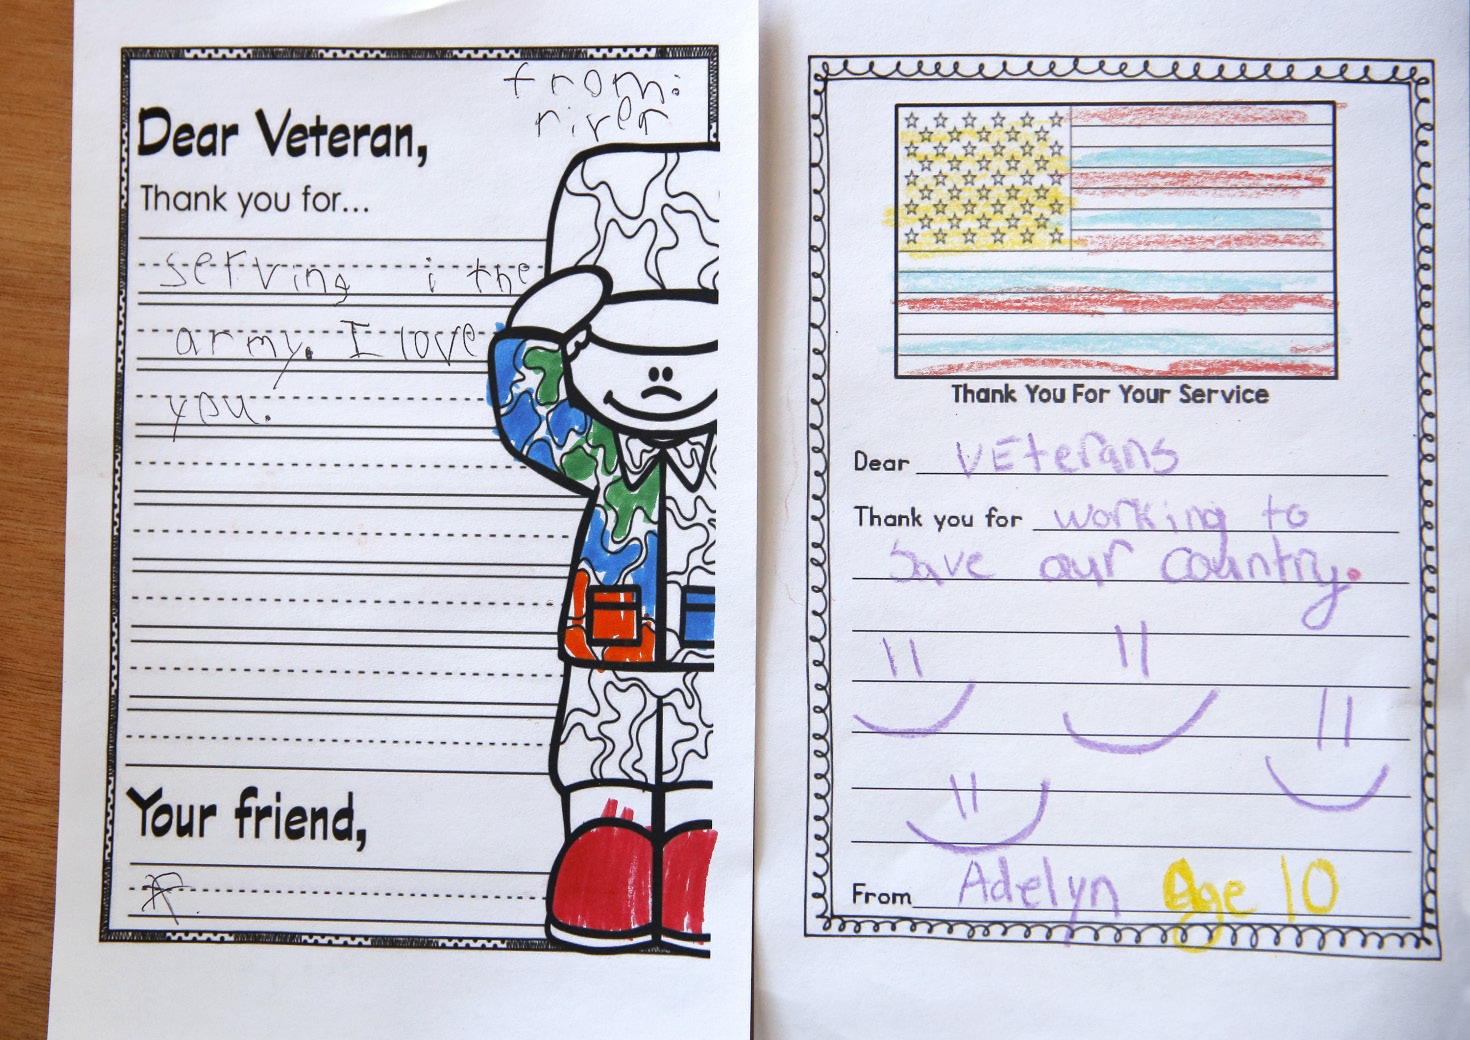 from:
river
Dear Veteran,
Thank you for...
serving i the
army. I love
you.
Your friend,
Thank You For Your Service
Dear Veterans
Thank you for working to
Save our country.
From Adelyn Age 10